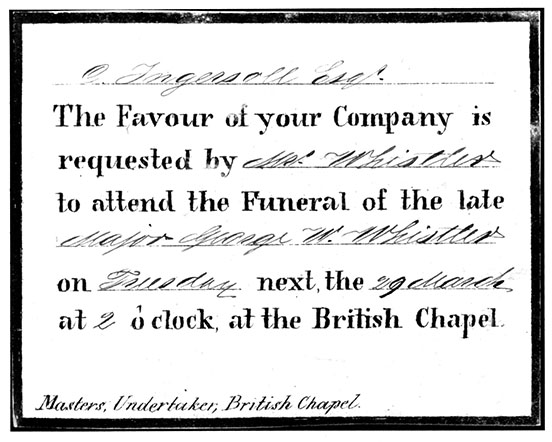 C. Ingersoll Esqr.
The Favour of your Company is
requested by Mrs. Whistler
to attend the Funeral of the late
Major George W. Whistler
on Tuesday next, the 29 March
at 2 o'clock, at the British Chapel.
Masters, Undertaker, British Chapel.